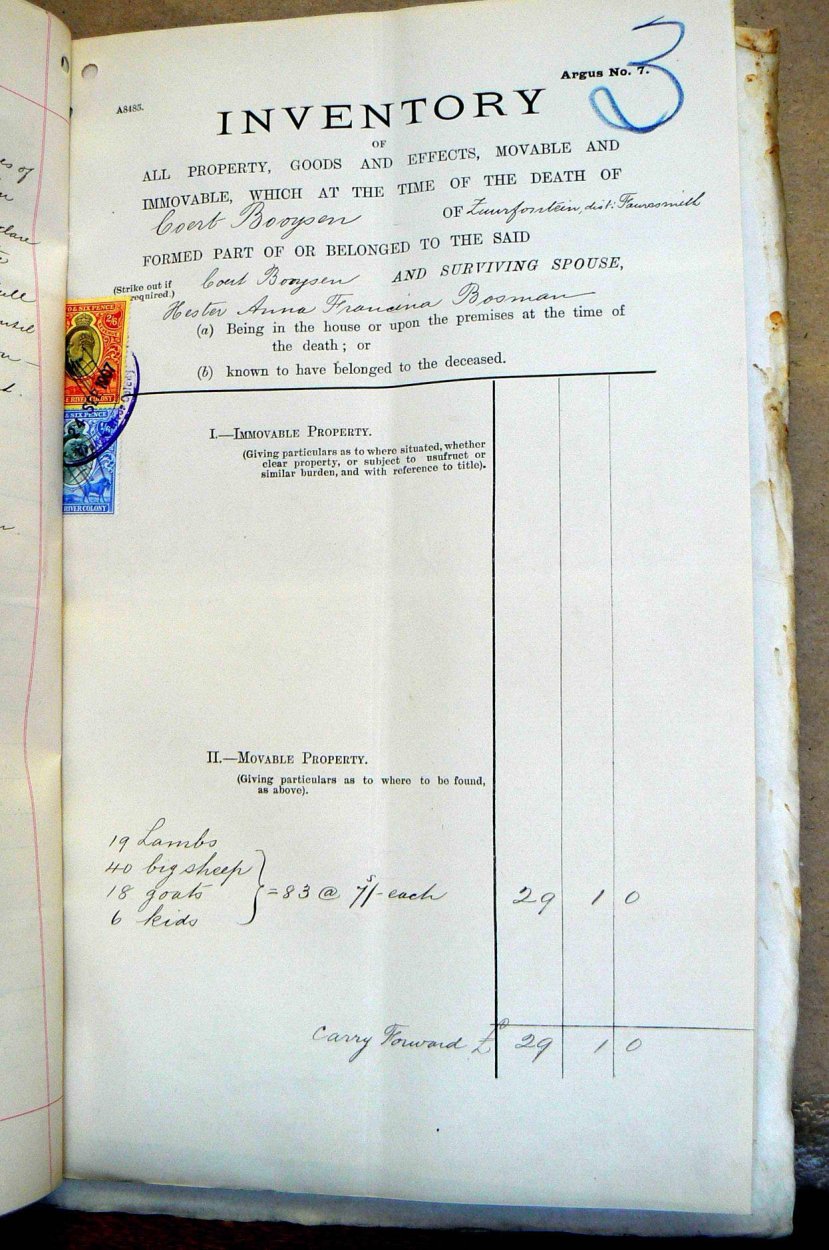 Argus No. 7.
3
A8485.
INVENTORY
OF
ALL PROPERTY, GOODS AND EFFECTS, MOVABLE AND
IMMOVABLE, WHICH AT THE TIME OF THE DEATH OF
Coert Booysen OF Zuurfontein, dist: Fauresmith
FORMED PART OF OR BELONGED TO THE SAID
(Strike out if required.) Coert Booysen AND SURVIVING SPOUSE,
Hester Anna Francina Bosman
(a) Being in the house or upon the premises at the time of
the death; or
(b) known to have belonged to the deceased.
& SIX PENCE
2/6
RIVER COLONY
1907
SIX PENCE
RIVER COLONY
I.—IMMOVABLE PROPERTY.
(Giving particulars as to where situated, whether
clear property, or subject to usufruct or
similar burden, and with reference to title).
II.—MOVABLE PROPERTY.
(Giving particulars as to where to be found,
as above).
19 Lambs
40 big sheep
18 goats = 83 @ 7/- each 29 1 0
6 kids
Carry Forward £ 29 1 0